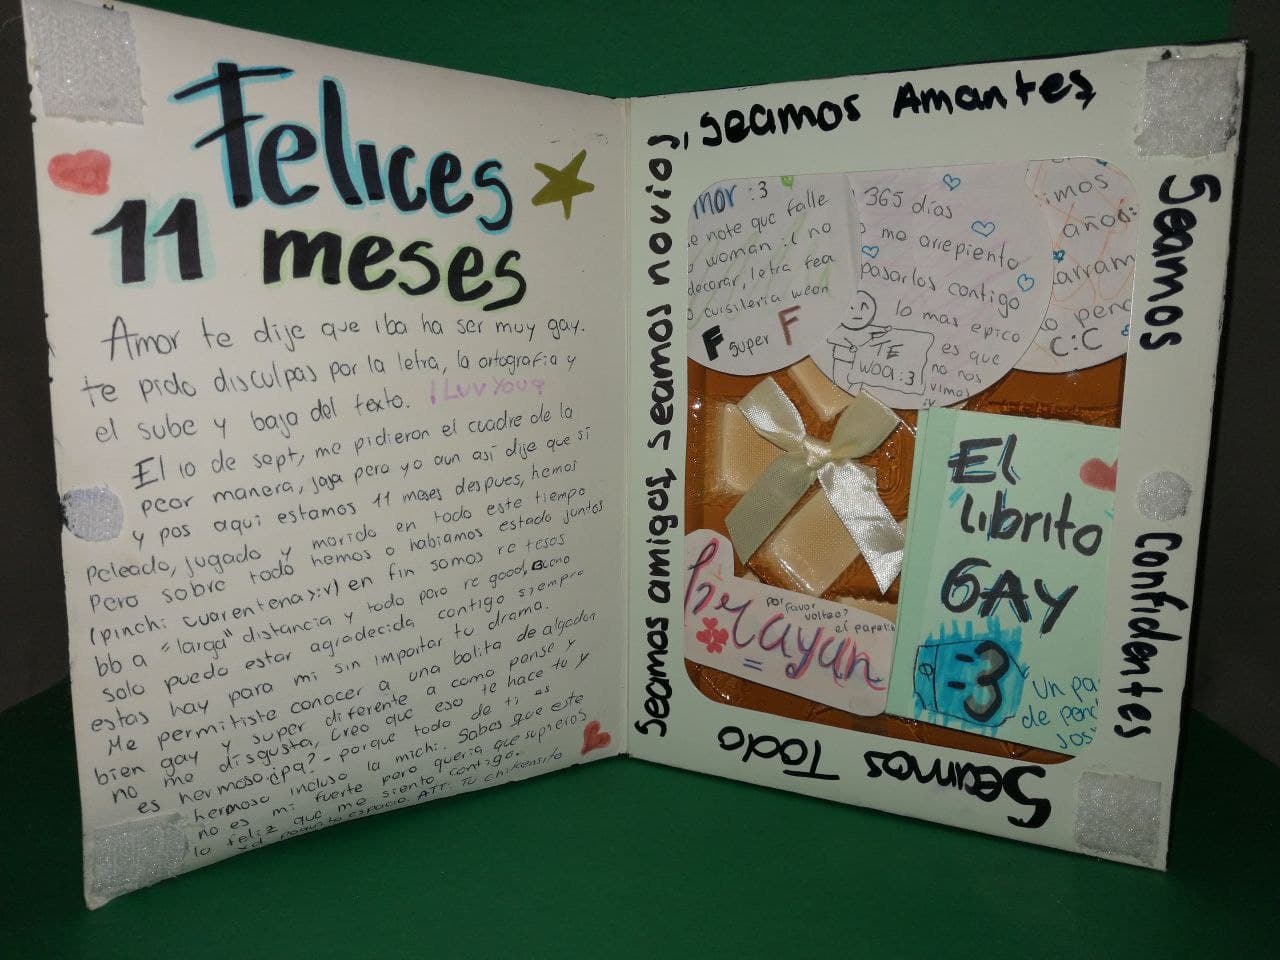 Felices
11 meses
Amor te dije que iba ha ser muy gay.
te pido disculpas por la letra, la ortografia y
el sube y baja del texto. ¡Luv You?
El 10 de sept, me pidieron el cuadre de la
peor manera, jaja pero yo aun asi dije que si
y pos aqui estamos 11 meses despues, hemos
peleado, jugado y morido en todo este tiempo
Pero sobre todo hemos o habiamos estado juntos
(pinchi cuarentena >:v) en fin somos re tesos
bb a "larga" distancia y todo pero re good, Bueno
solo puedo estar agradecida contigo siempre
estas hay para mi sin importar tu drama.
Me permitiste conocer a una bolita de algodon
bien gay y super diferente a como pense y
no me disgusta, creo que eso te hace tu y
es hermoso ¿pa?- porque todo de ti es
hermoso incluso la michi. Sabes que este
no es mi fuerte pero queria que supieras
lo feliz que me siento contigo.
xd poquito espacio. ATT: Tu chikensito
Seamos amigos seamos novios, seamos Amantes
Seamos Confidentes
Seamos Todo
mor :3
e note que falle
woman :( no
decorar, letra fea
cursileria weon
F super F
365 días
me arrepiento
pasarlos contigo
lo mas epico
es que
no nos
vimos
:v
TE
woa :3
imos
años:
arram
pero
C:C
por favor
voltee?
el papelito
brayan
El
librito
GAY
:3
un pa
de pend
Jos